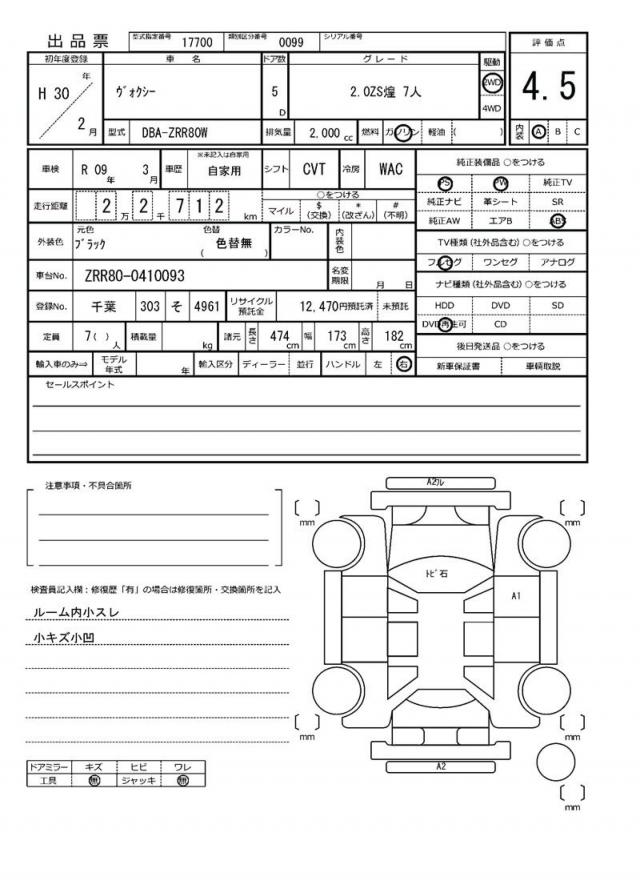 出品票 型式指定番号 17700 類別区分番号 0099 シリアル番号
初年度登録 車名 ドア数 グレード 駆動 評価点
H 30 年 2 月 ヴォクシー 5 D 2.0ZS煌 7人 2WD 4WD 4.5
型式 DBA-ZRR80W 排気量 2,000 cc 燃料 ガソリン 軽油 ( ) 内装 A B C
車検 R 09 年 3 月 車歴 ※未記入は自家用 自家用 シフト CVT 冷房 WAC
走行距離 2 万 2 千 7 1 2 km ○をつける マイル $ (交換) * (改ざん) # (不明)
外装色 元色 ブラック 色替 ( 色替無 ) カラーNo. 内装色
車台No. ZRR80-0410093 名変期限 月 日
登録No. 千葉 303 そ 4961 リサイクル預託金 12,470円預託済 未預託
定員 7( ) 人 積載量 kg 諸元 長さ 474 cm 幅 173 cm 高さ 182 cm
輸入車のみ⇒ モデル年式 年 輸入区分 ディーラー 並行 ハンドル 左 右
純正装備品 ○をつける
PS PW 純正TV
純正ナビ 革シート SR
純正AW エアB ABS
TV種類(社外品含む) ○をつける
フルセグ ワンセグ アナログ
ナビ種類(社外品含む) ○をつける
HDD DVD SD
DVD再生可 CD
後日発送品 ○をつける
新車保証書 車輌取説
セールスポイント
注意事項・不具合箇所
検査員記入欄：修復歴「有」の場合は修復箇所・交換箇所を記入
ルーム内小スレ
小キズ小凹
ドアミラー キズ ヒビ ワレ
工具 無 ジャッキ 無
A2ﾜﾚ
mm mm
ﾄﾋﾞ石
A1
mm mm
A2
mm